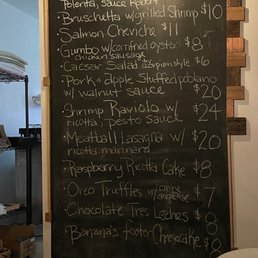 Polenta, sauce Robert
Bruschetta w/ grilled Shrimp $10
Salmon Cheviche $11
Gumbo w/ cornfried oyster $8
chicken sausage
Caesar Salad $6
Pork + apple Stuffed poblano
w/ walnut sauce $20
Shrimp Raviolo w/ $24
ricotta, pesto sauce
Meatball Lasagna w/ $20
ricotta marinara
Raspberry Ricotta Cake $8
Oreo Truffles w/ creme $7
anglaise
Chocolate Tres Leches $8
Bananas foster Cheesecake $8